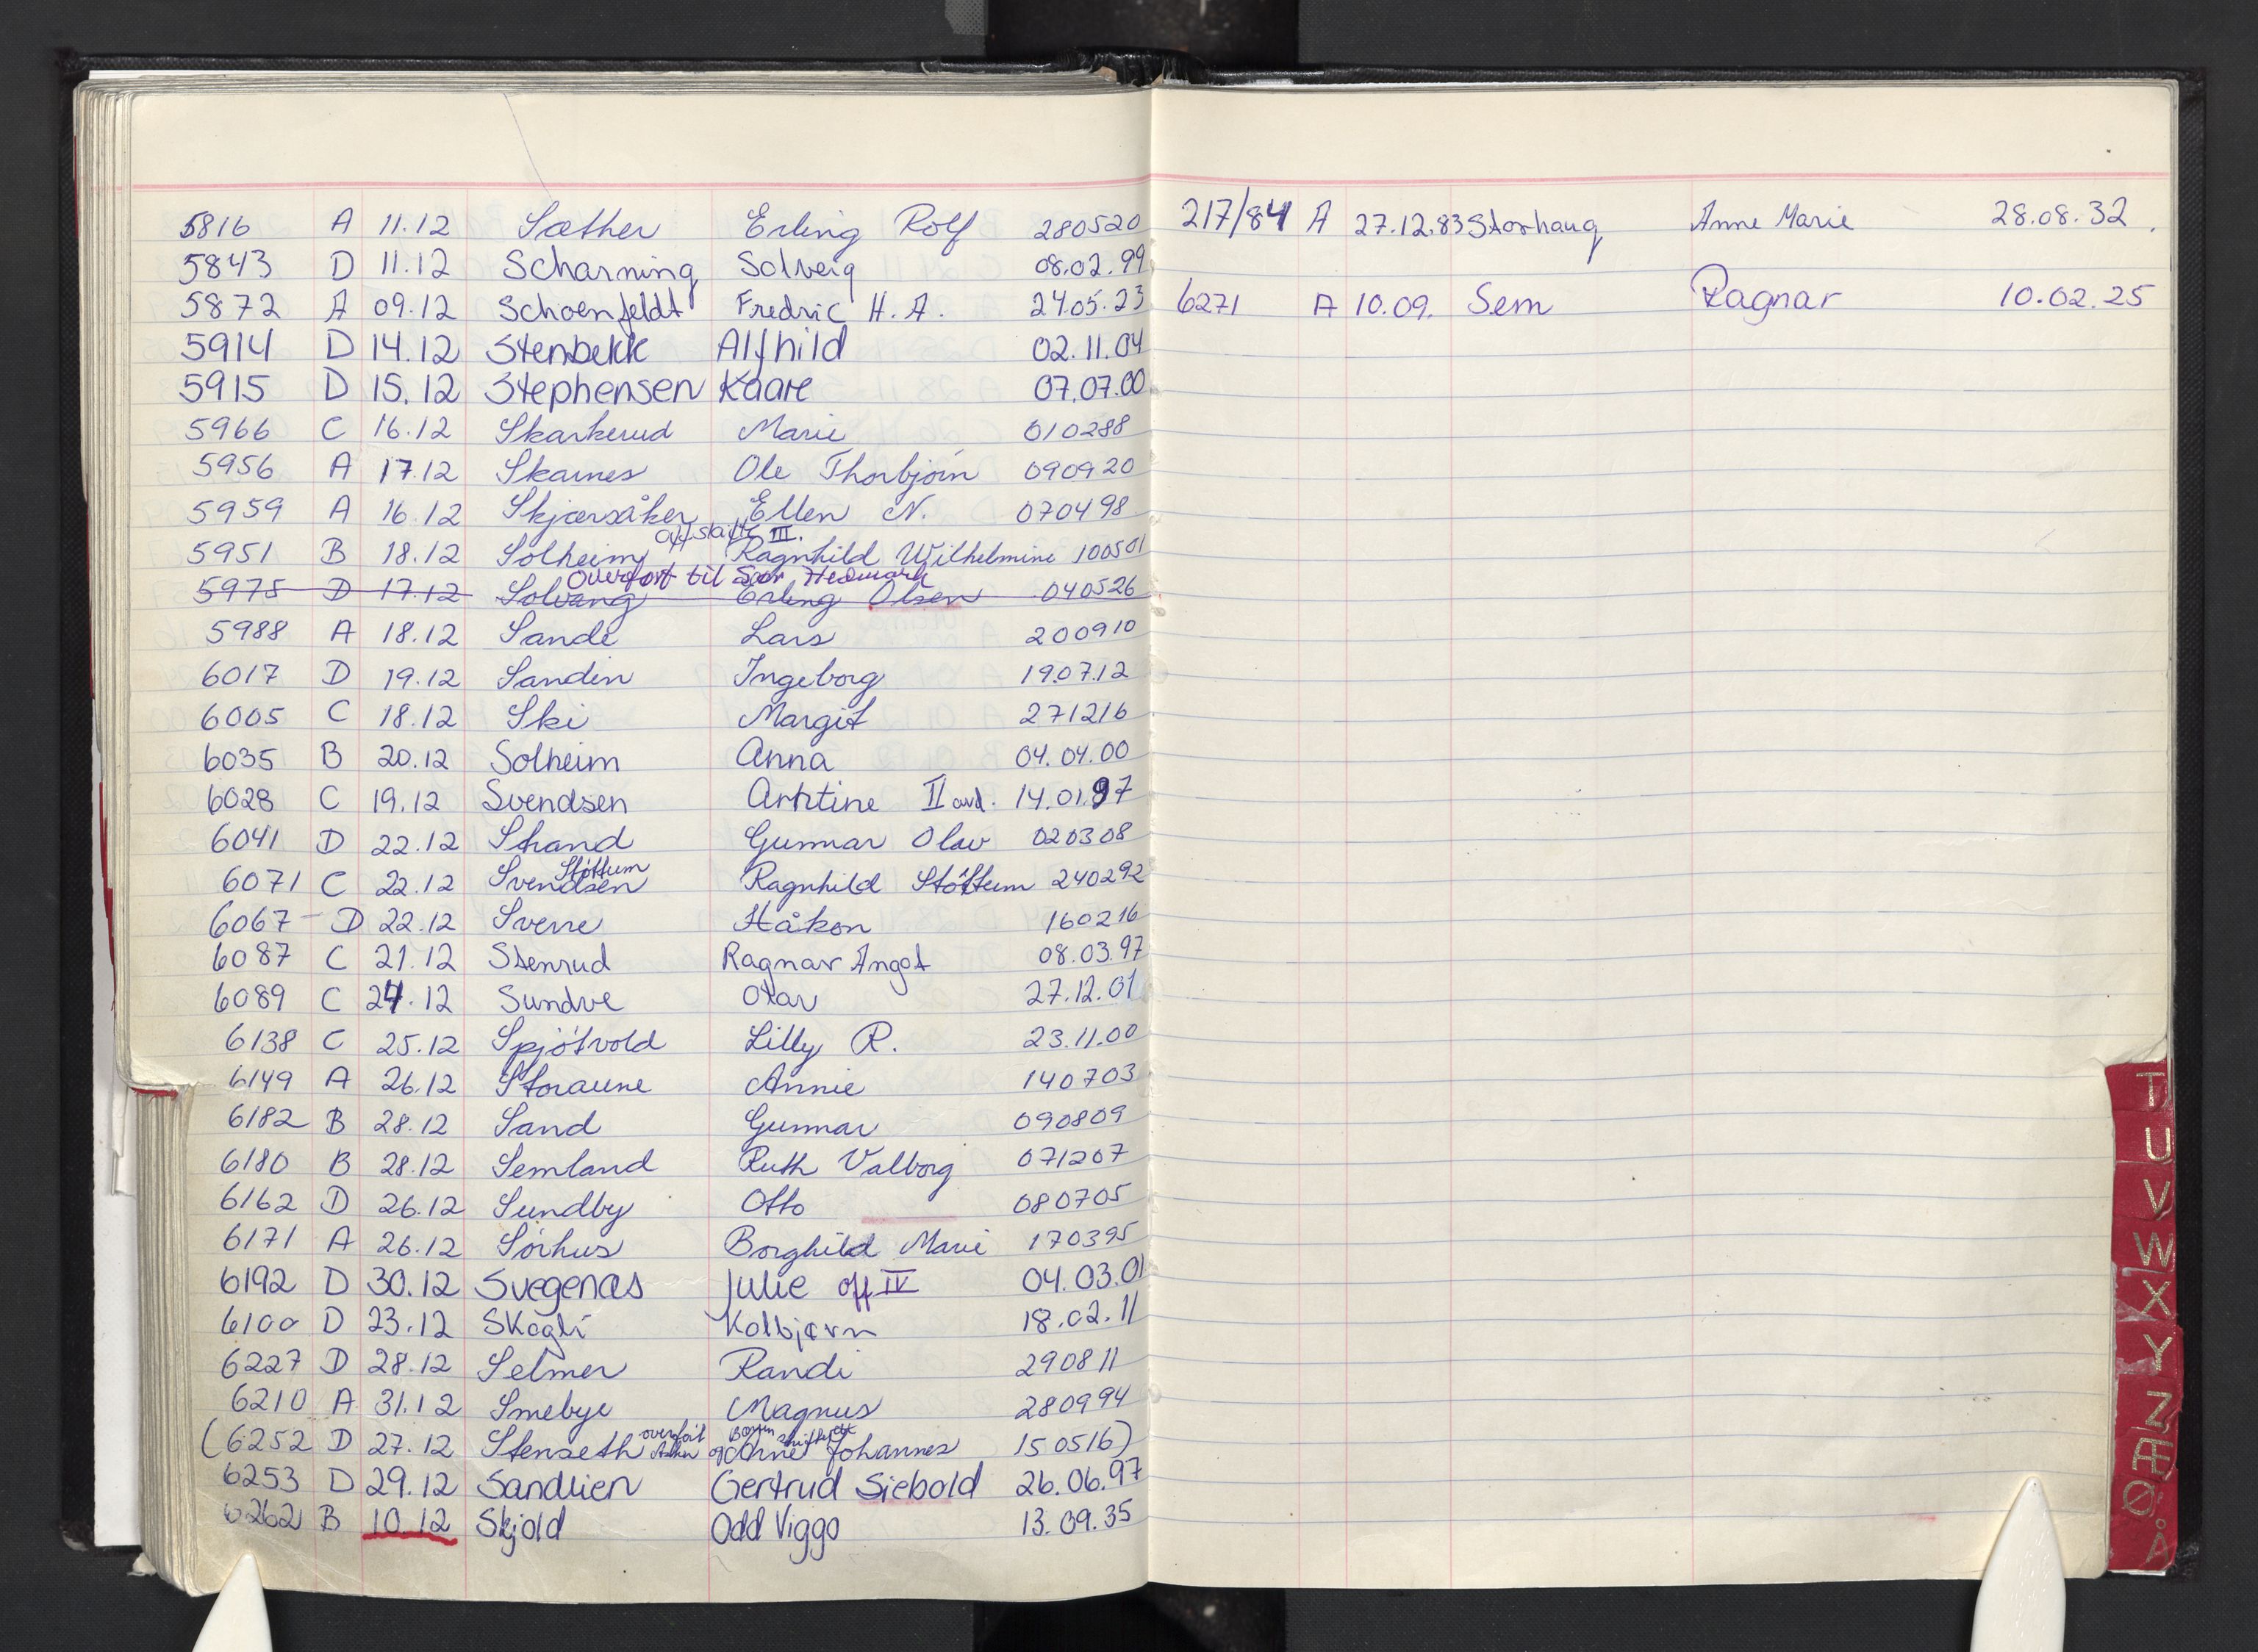 5816 A 11.12 Sæther Erling Rolf 280520
5843 D 11.12 Scharning Solveig 08.02.99
5872 A 09.12 Schoenfeldt Fredric H. A. 24.05.23
5914 D 14.12 Stenbekk Alfhild 02.11.04
5915 D 15.12 Stephensen Kaare 07.07.00
5966 C 16.12 Skarkerud Marie 010288
5956 A 17.12 Skarnes Ole Thorbjørn 090920
5959 A 16.12 Skjærsåker Ellen N. 070498
off. skifte III.
5951 B 18.12 Solheim Ragnhild Wilhelmine 100501
overført til Sør Hedmark
5975 D 17.12 Solvang Erling Olsen 040526
5988 A 18.12 Sande Lars 200910
6017 D 19.12 Sandin Ingeborg 19.07.12
6005 C 18.12 Ski Margit 271216
6035 B 20.12 Solheim Anna 04.04.00
6028 C 19.12 Svendsen II avd. 14.01.97
6041 D 22.12 Strand Gunnar Olav 020308
Støttum
6071 C 22.12 Svendsen Ragnhild Støttum 240292
6067 D 22.12 Sverre Håkon 160216
6087 C 21.12 Stenrud Ragnar Angot 08.03.97
6089 C 24.12 Sundve Olav 27.12.01
6138 C 25.12 Spjøtvold Lilly R. 23.11.00
6149 A 26.12 Storaune Annie 140703
6182 B 28.12 Sand Gunnar 090809
6180 B 28.12 Semland Ruth Valborg 071207
6162 D 26.12 Sundby Otto 080705
6171 A 26.12 Sørhus Borghild Marie 170395
6192 D 30.12 Svegenæs Julie off IV 04.03.01
6100 D 23.12 Skogli Kolbjørn 18.02.11
6227 D 28.12 Selmer Randi 290811
6210 A 31.12 Smebye Magnus 280994
overført
(6252 D 27.12 Stenseth Asker og Arne Johannes 150516)
6253 D 29.12 Sandlien Gertrud Siebold 26.06.97
6262 B 10.12 Skjold Odd Viggo 13.09.35
217/84 A 27.12.83 Storhaug Anne Marie 28.08.32.
6271 A 10.09. Sem Ragnar 10.02.25
T
U
V
W
X
Y
Z
Æ
Ø
Å